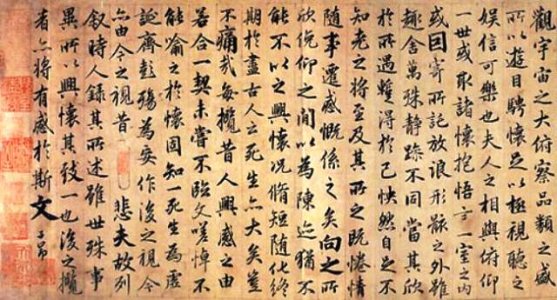 觀宇宙之大俯察品類之盛
所以遊目騁懷足以極視聽之
娛信可樂也夫人之相與俯仰
一世或取諸懷抱悟言一室之內
或因寄所託放浪形骸之外雖
趣舍萬殊靜躁不同當其欣
於所遇蹔得於己怏然自足不
知老之將至及其所之既惓情
隨事遷感慨係之矣向之所
欣俛仰之間以為陳迹猶不
能不以之興懷況脩短隨化終
期於盡古人云死生亦大矣豈
不痛哉每攬昔人興感之由
若合一契未嘗不臨文嗟悼不
能喻之於懷固知一死生為虛
誕齊彭殤為妄作後之視今
亦由今之視昔 悲夫故列
敘時人錄其所述雖世殊事
異所以興懷其致一也後之攬
者亦將有感於斯文 子昂